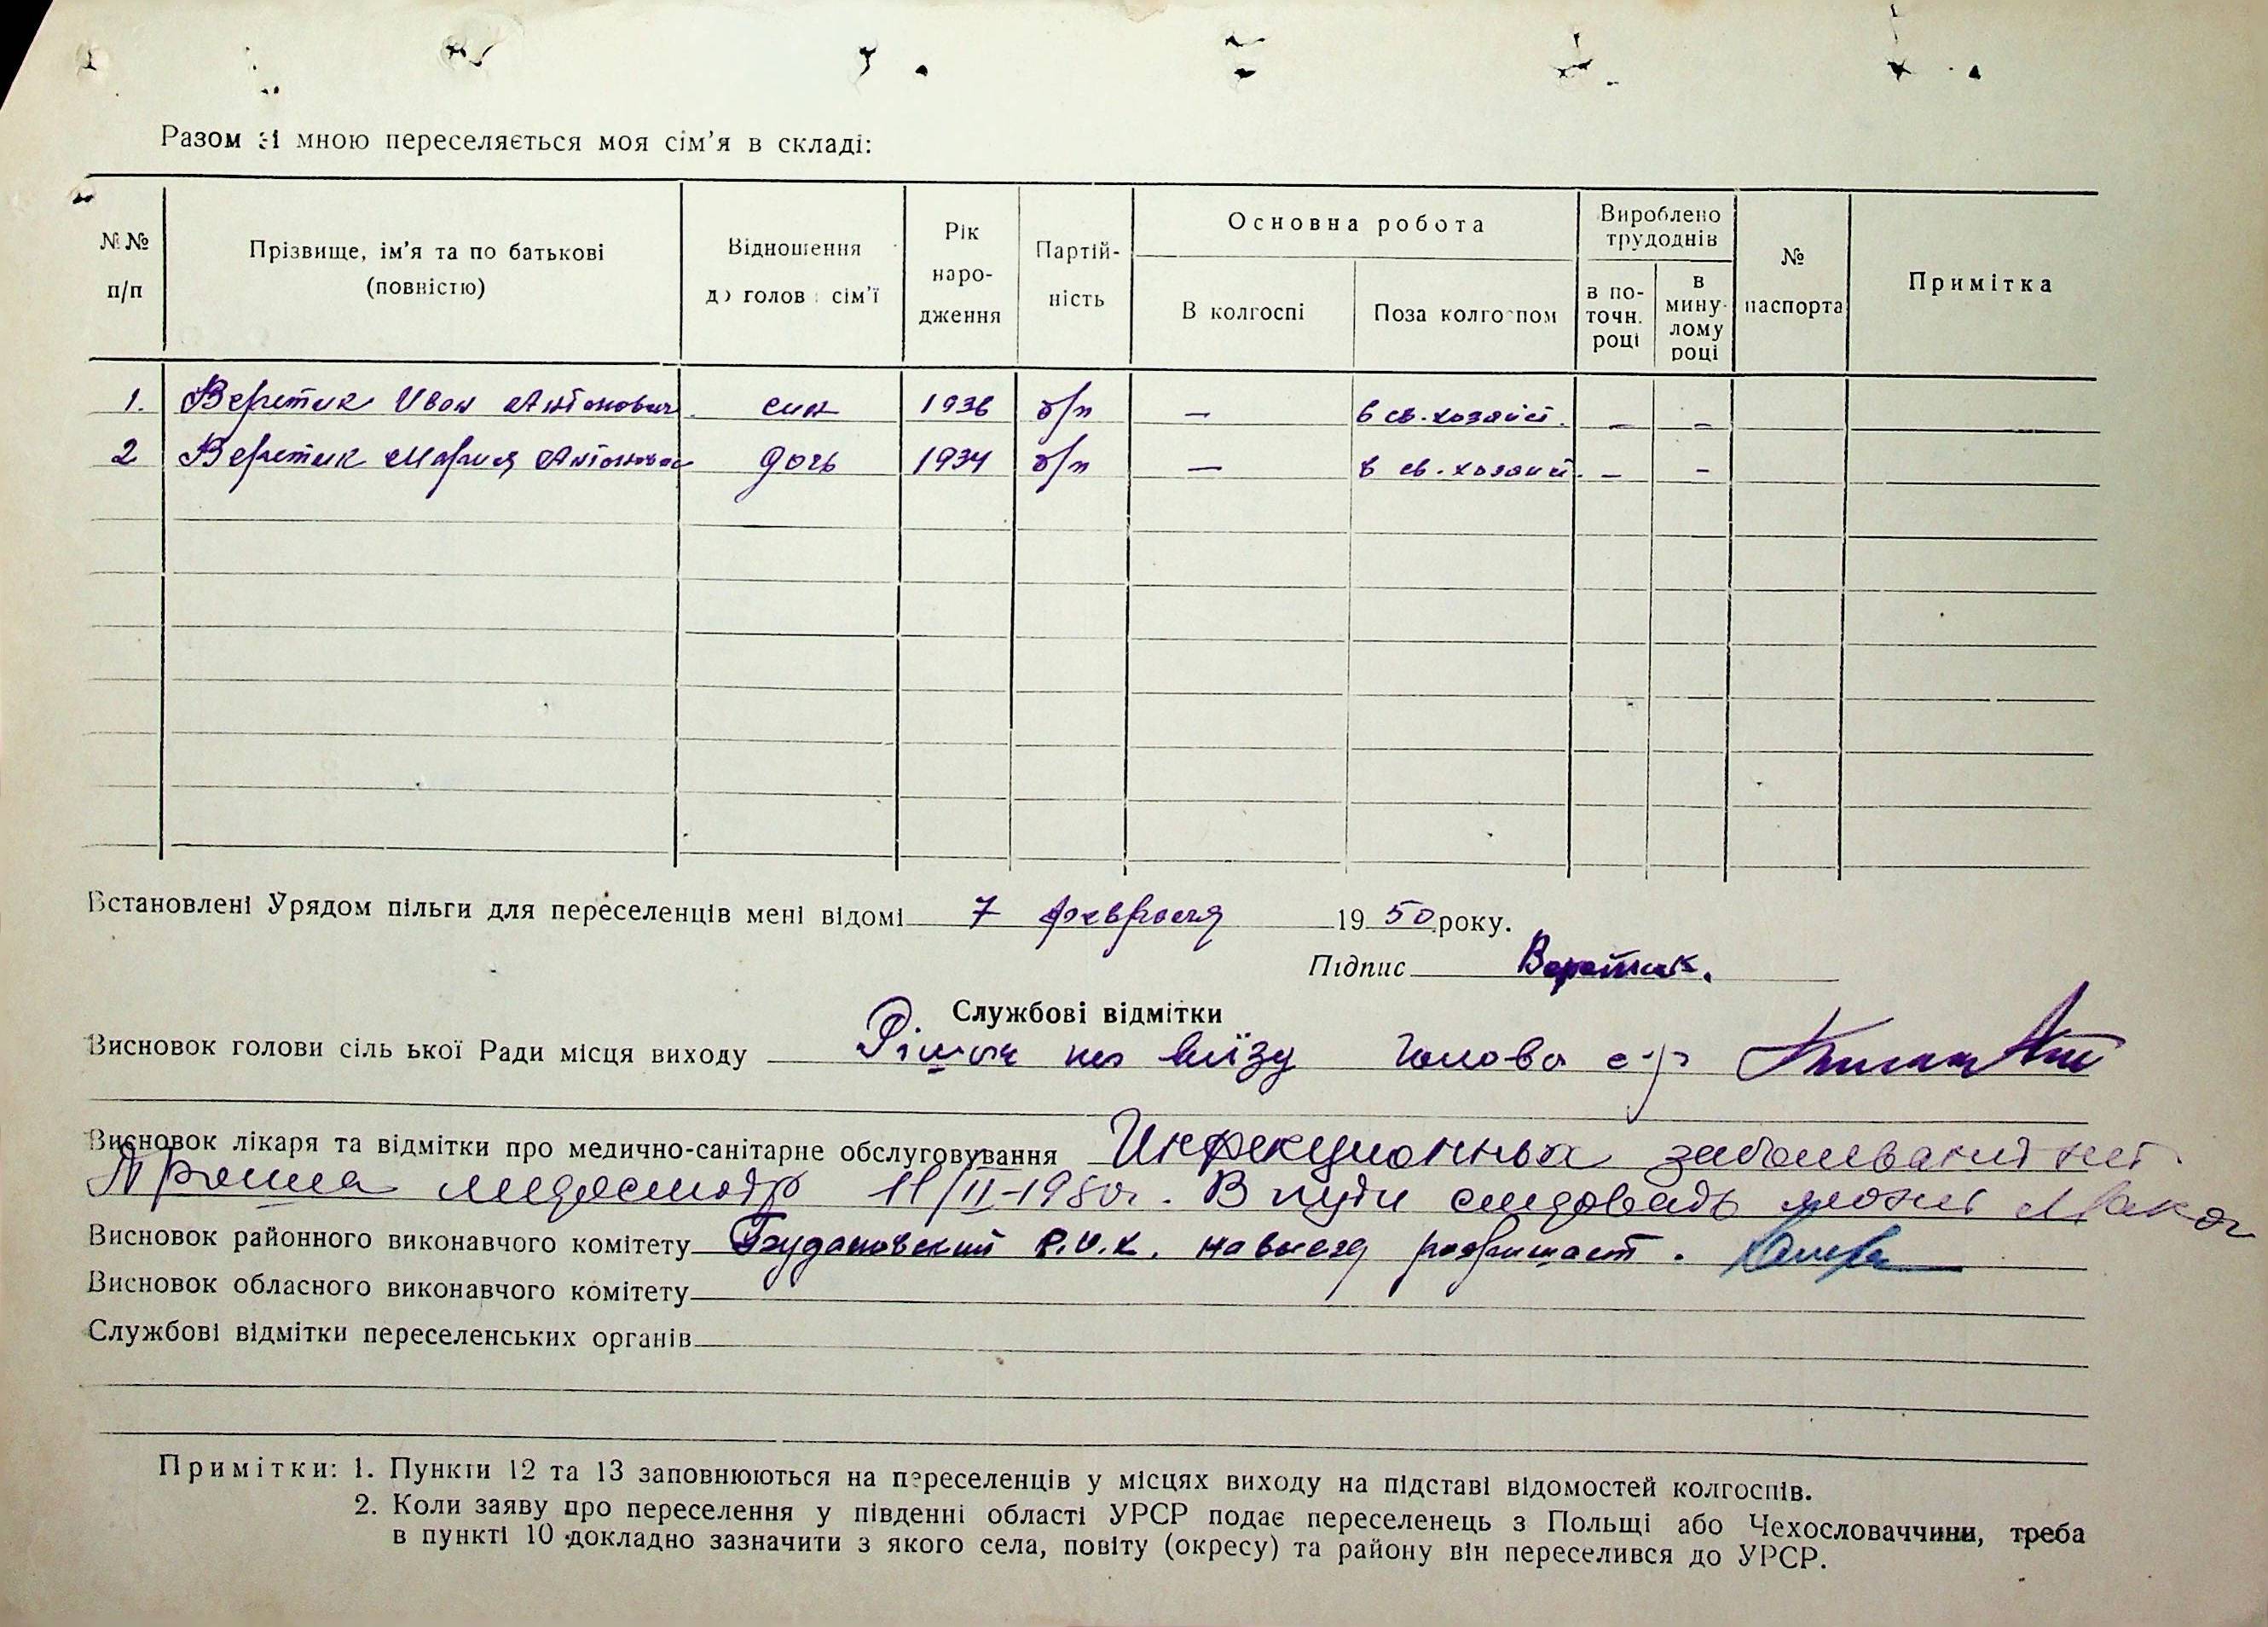 Разом зі мною переселяється моя сім'я в складі:
№№ п/п
Прізвище, ім'я та по батькові (повністю)
Відношення до голови сім'ї
Рік народження
Партійність
Основна робота
В колгоспі
Поза колгоспом
Вироблено трудоднів
в поточн. році
в минулому році
№ паспорта
Примітка
1. Веретик Иван Антонович син 1936 б/п — в св. хозяйст. – –
2 Веретик Мария Антоновна дочь 1934 б/п — в св. хозяйст. – –
Встановлені Урядом пільги для переселенців мені відомі 7 февраля 1950 року.
Підпис Веретик.
Службові відмітки
Висновок голови сільської Ради місця виходу голова с/р
Висновок лікаря та відмітки про медично-санітарне обслуговування Инфекционных заболеваний нет.
Прошла медосмотр 11/II-1950г. В пути следовать может
Висновок районного виконавчого комітету Будановский Р.И.К. на выезд разрешает.
Висновок обласного виконавчого комітету
Службові відмітки переселенських органів
Примітки: 1. Пункти 12 та 13 заповнюються на переселенців у місцях виходу на підставі відомостей колгоспів.
2. Коли заяву про переселення у південні області УРСР подає переселенець з Польщі або Чехословаччини, треба
в пункті 10 докладно зазначити з якого села, повіту (окресу) та району він переселився до УРСР.